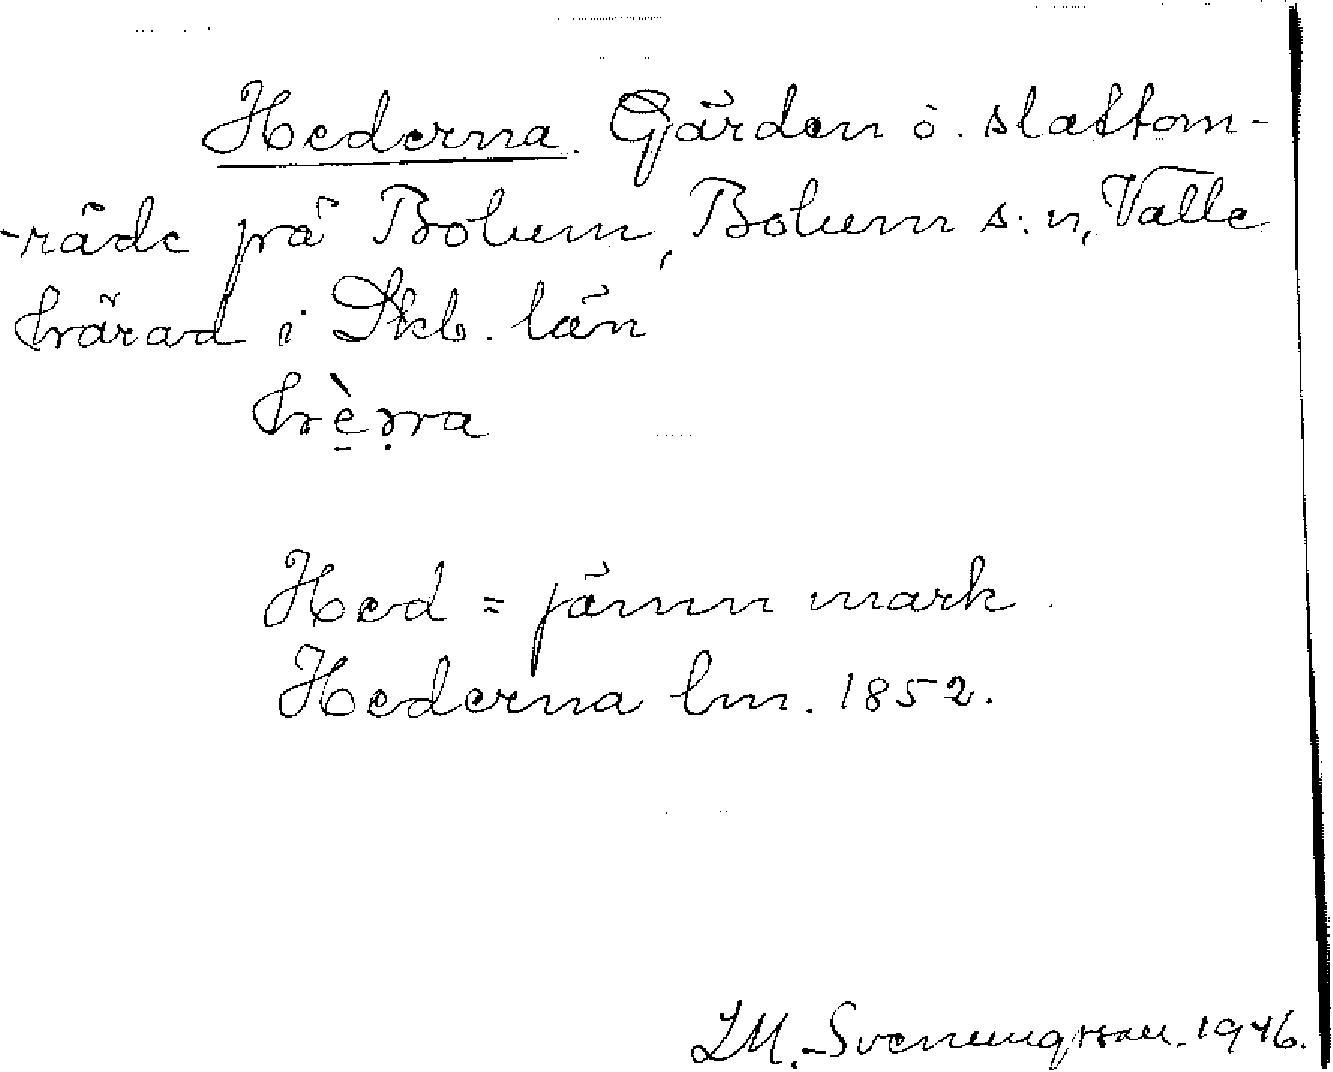 Hederna. Gärden o. slåttom-
-råde på Bolum, Bolum s:n, Valle
härad i Skb. län
hèṛra
Hed = jämn mark.
Hederna lm. 1852.
LM. Svenungsson. 1946.